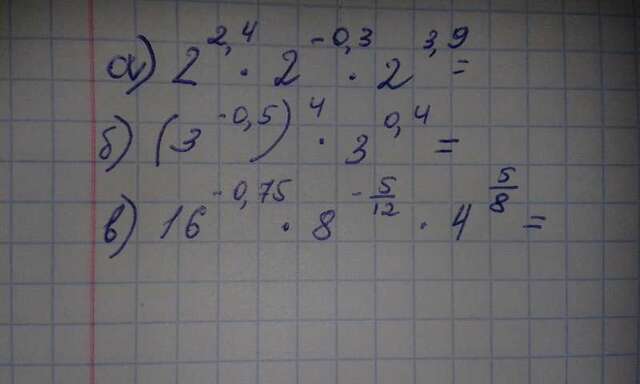 а) 2^{2,4} · 2^{-0,3} · 2^{3,9} =
б) (3^{-0,5})^4 · 3^{0,4} =
в) 16^{-0,75} · 8^{-5/12} · 4^{5/8} =